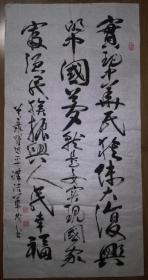 實現中華民族伟大復興
的中國夢就是要实现國家
富强民族振興人民幸福